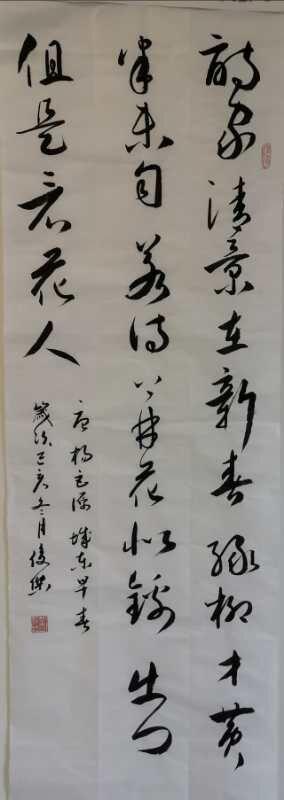 詩家清景在新春綠柳才黄
半未匀若待上林花似錦出门
俱是看花人
唐杨巨源城东早春
歲次己亥冬月俊